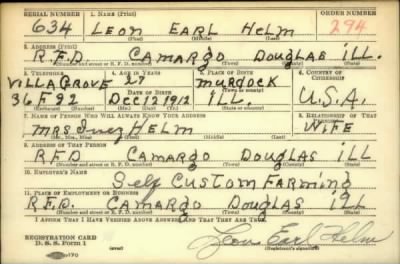 SERIAL NUMBER 1. NAME (Print) ORDER NUMBER
634 LEON EARL HELM 294
(First) (Middle) (Last)
2. ADDRESS (Print)
R.F.D. CAMARGO DOUGLAS ILL.
(Number and street or R. F. D. number) (Town) (County) (State)
3. TELEPHONE 4. AGE IN YEARS 5. PLACE OF BIRTH 6. COUNTRY OF CITIZENSHIP
VILLA GROVE 27 MURDOCK
DATE OF BIRTH
36F22 DEC 12 1912 ILL. U.S.A.
7. NAME OF PERSON WHO WILL ALWAYS KNOW YOUR ADDRESS 8. RELATIONSHIP OF THAT PERSON
MRS INEZ HELM WIFE
9. ADDRESS OF THAT PERSON
RFD CAMARGO DOUGLAS ILL
(Number and street or R. F. D. number) (Town) (County) (State)
10. EMPLOYER'S NAME
Self CUSTOM FARMING
11. PLACE OF EMPLOYMENT OR BUSINESS
R.F.D. CAMARGO DOUGLAS ILL
(Number and street or R. F. D. number) (Town) (County) (State)
I AFFIRM THAT I HAVE VERIFIED ABOVE ANSWERS AND THAT THEY ARE TRUE.
REGISTRATION CARD
D. S. S. Form 1 Leon Earl Helm
(over) (Registrant's signature)